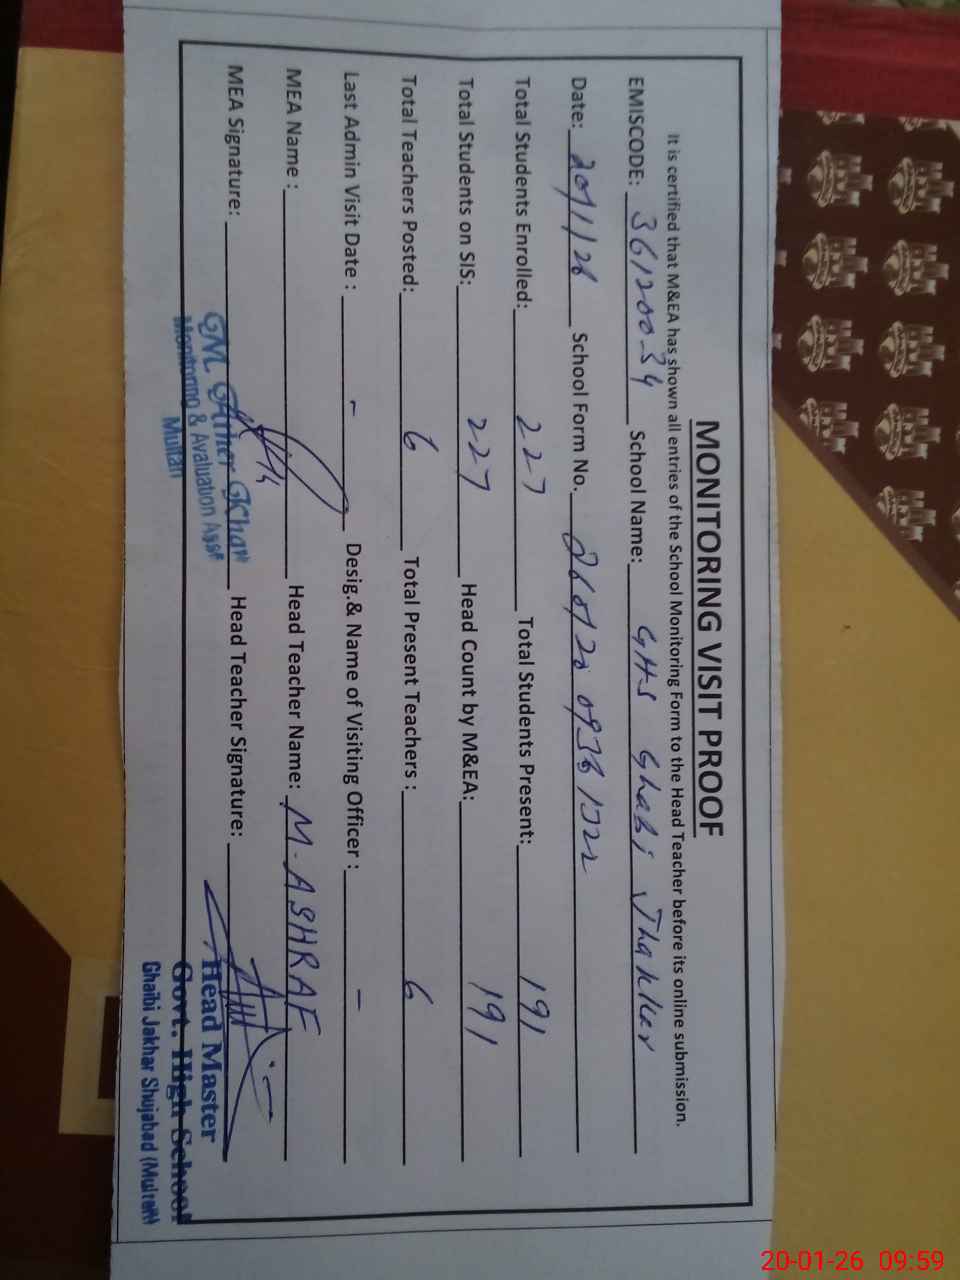 MONITORING VISIT PROOF
It is certified that M&EA has shown all entries of the School Monitoring Form to the Head Teacher before its online submission.
EMISCODE: 36120034 School Name: GHS Ghabi Jhakkar
Date: 20/1/26 School Form No.
Total Students Enrolled: 227 Total Students Present: 191
Total Students on SIS: 227 Head Count by M&EA: 191
Total Teachers Posted: 6 Total Present Teachers : 6
Last Admin Visit Date : - Desig.& Name of Visiting Officer : -
MEA Name : Head Teacher Name: M. ASHRAF
MEA Signature: Head Teacher Signature:
Khan
Monitoring & Avaluation Asst
Multan
Head Master
Govt. High School
Ghaibi Jakhar Shujabad (Multan)
20-01-26 09:59